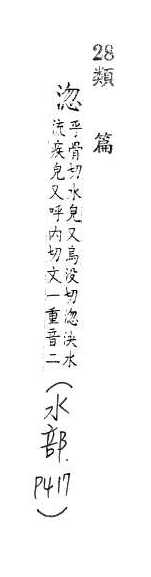 28類篇
淴
乎骨切水皃又烏没切淴泱水
流疾皃又呼内切文一重音二
(水部.
P417)